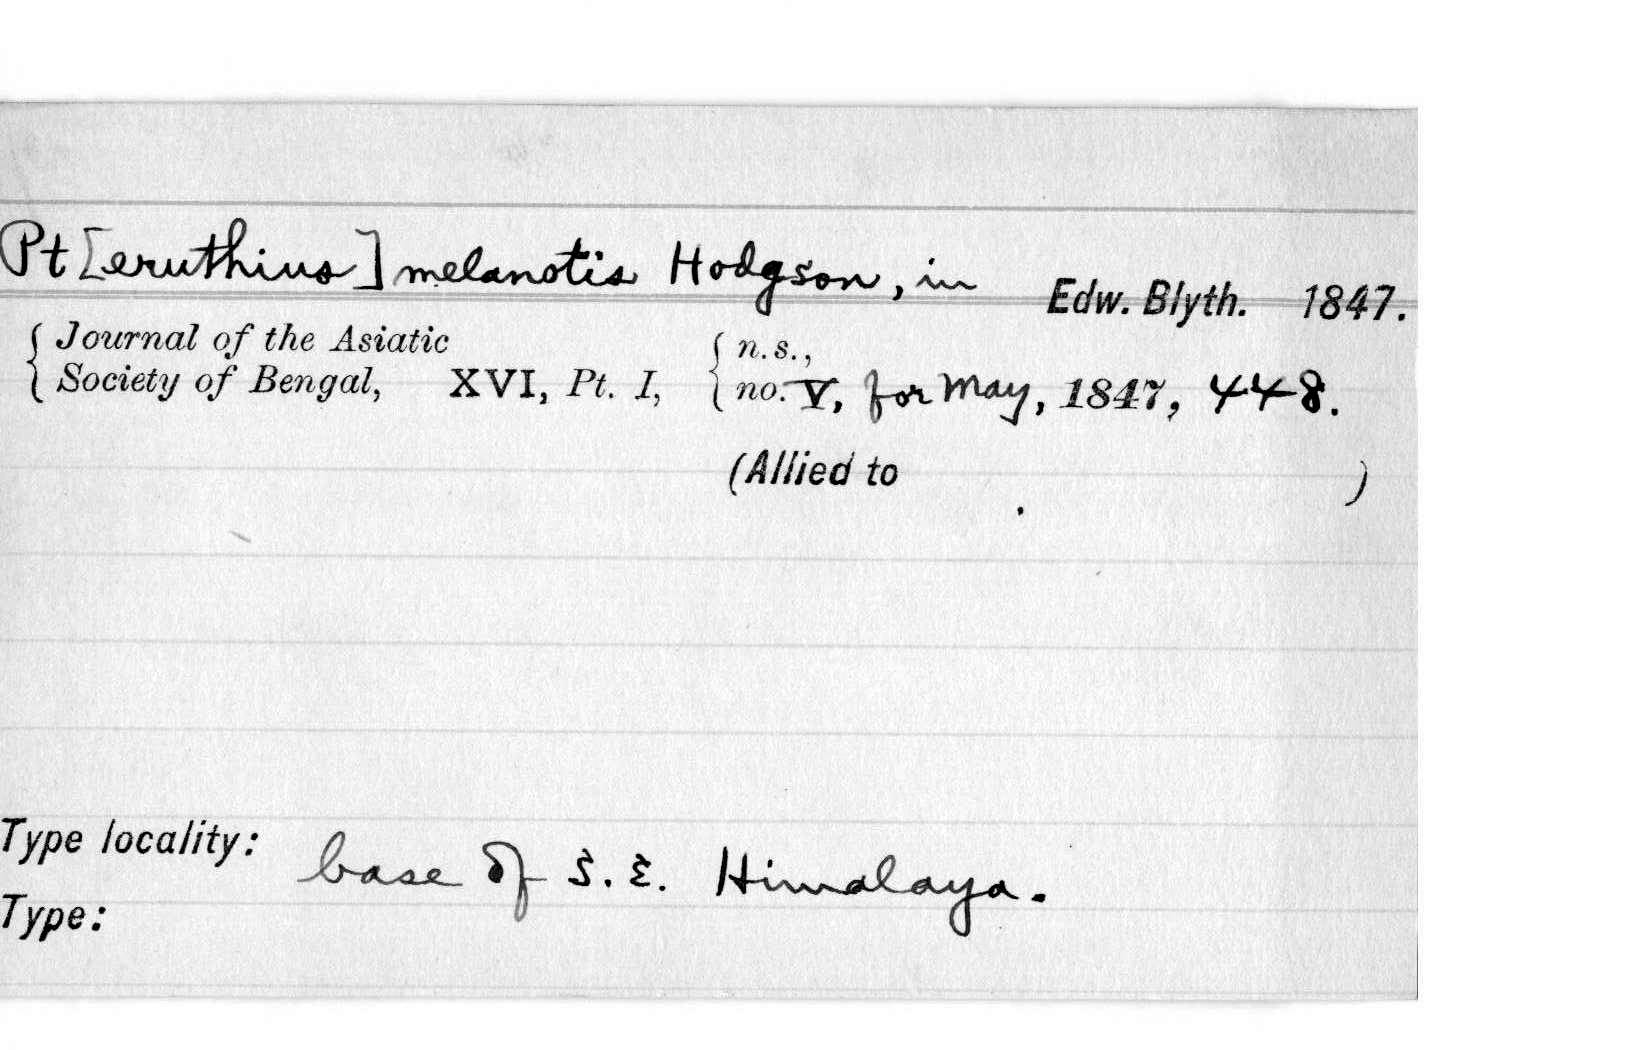 Pt[eruthius] melanotis Hodgson, in Edw. Blyth. 1847.
Journal of the Asiatic n.s.,
Society of Bengal, XVI, Pt. I, no. V, for May, 1847, 448.
(Allied to . )
Type locality: base of S. E. Himalaya.
Type: